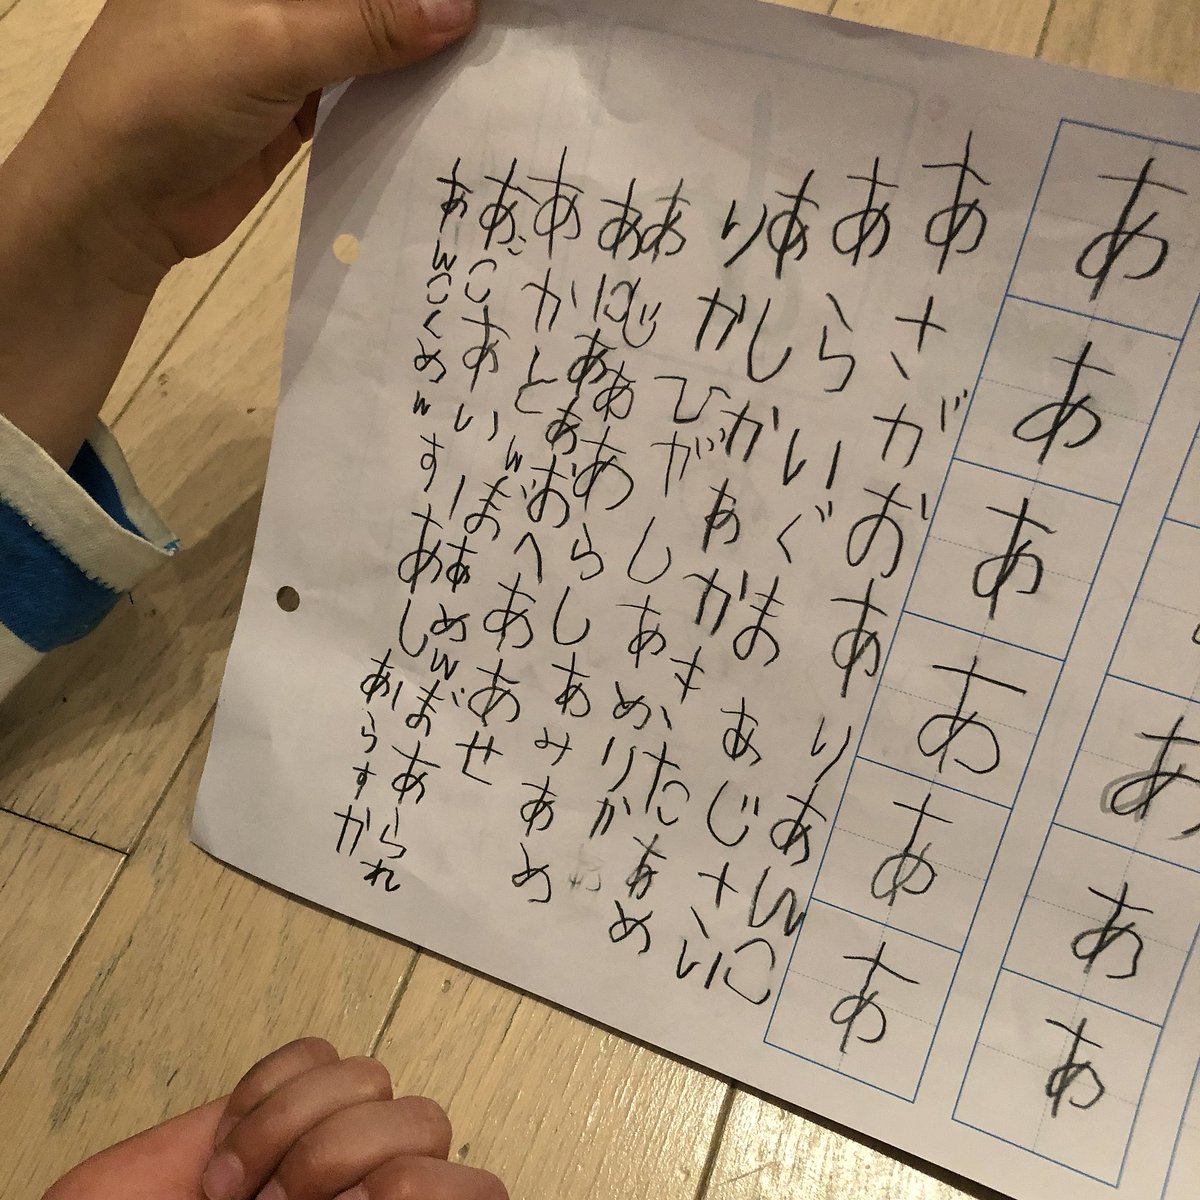 あああ
ああああああ
あさがおあありあんこ
あらいぐまあじさい
あしかあかさたあめ
りかひがしあめりか
あじああらしあみあめ
あにああおへああせ
あかとんぼあめんぼあられ
あごあい
あんこくめんすあしあらすか